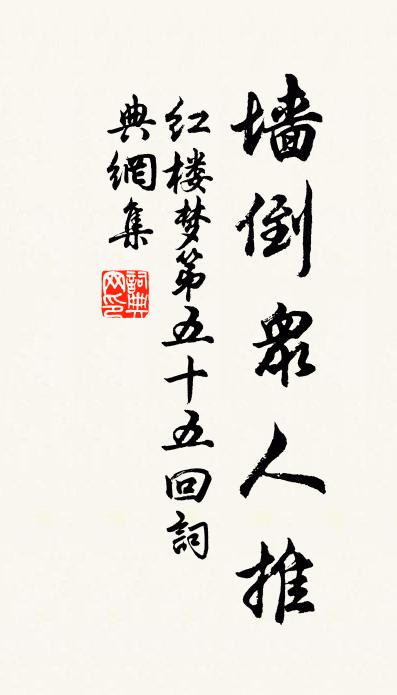 墙倒眾人推
红楼梦第五十五回詞
典網集
詞典
网印